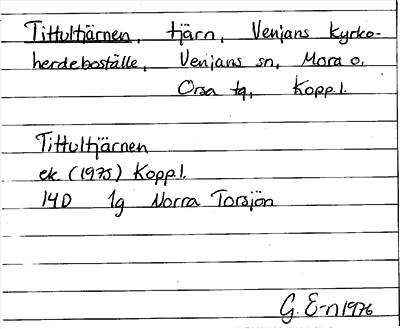 Tittultjärnen, tjärn, Venjans kyrko-
herdeboställe, Venjans sn, Mora o.
Orsa tg, Kopp.l.
Tittultjärnen
ek. (1975) Kopp.l.
14D 1g Norra Torsjön
G. E-n 1976